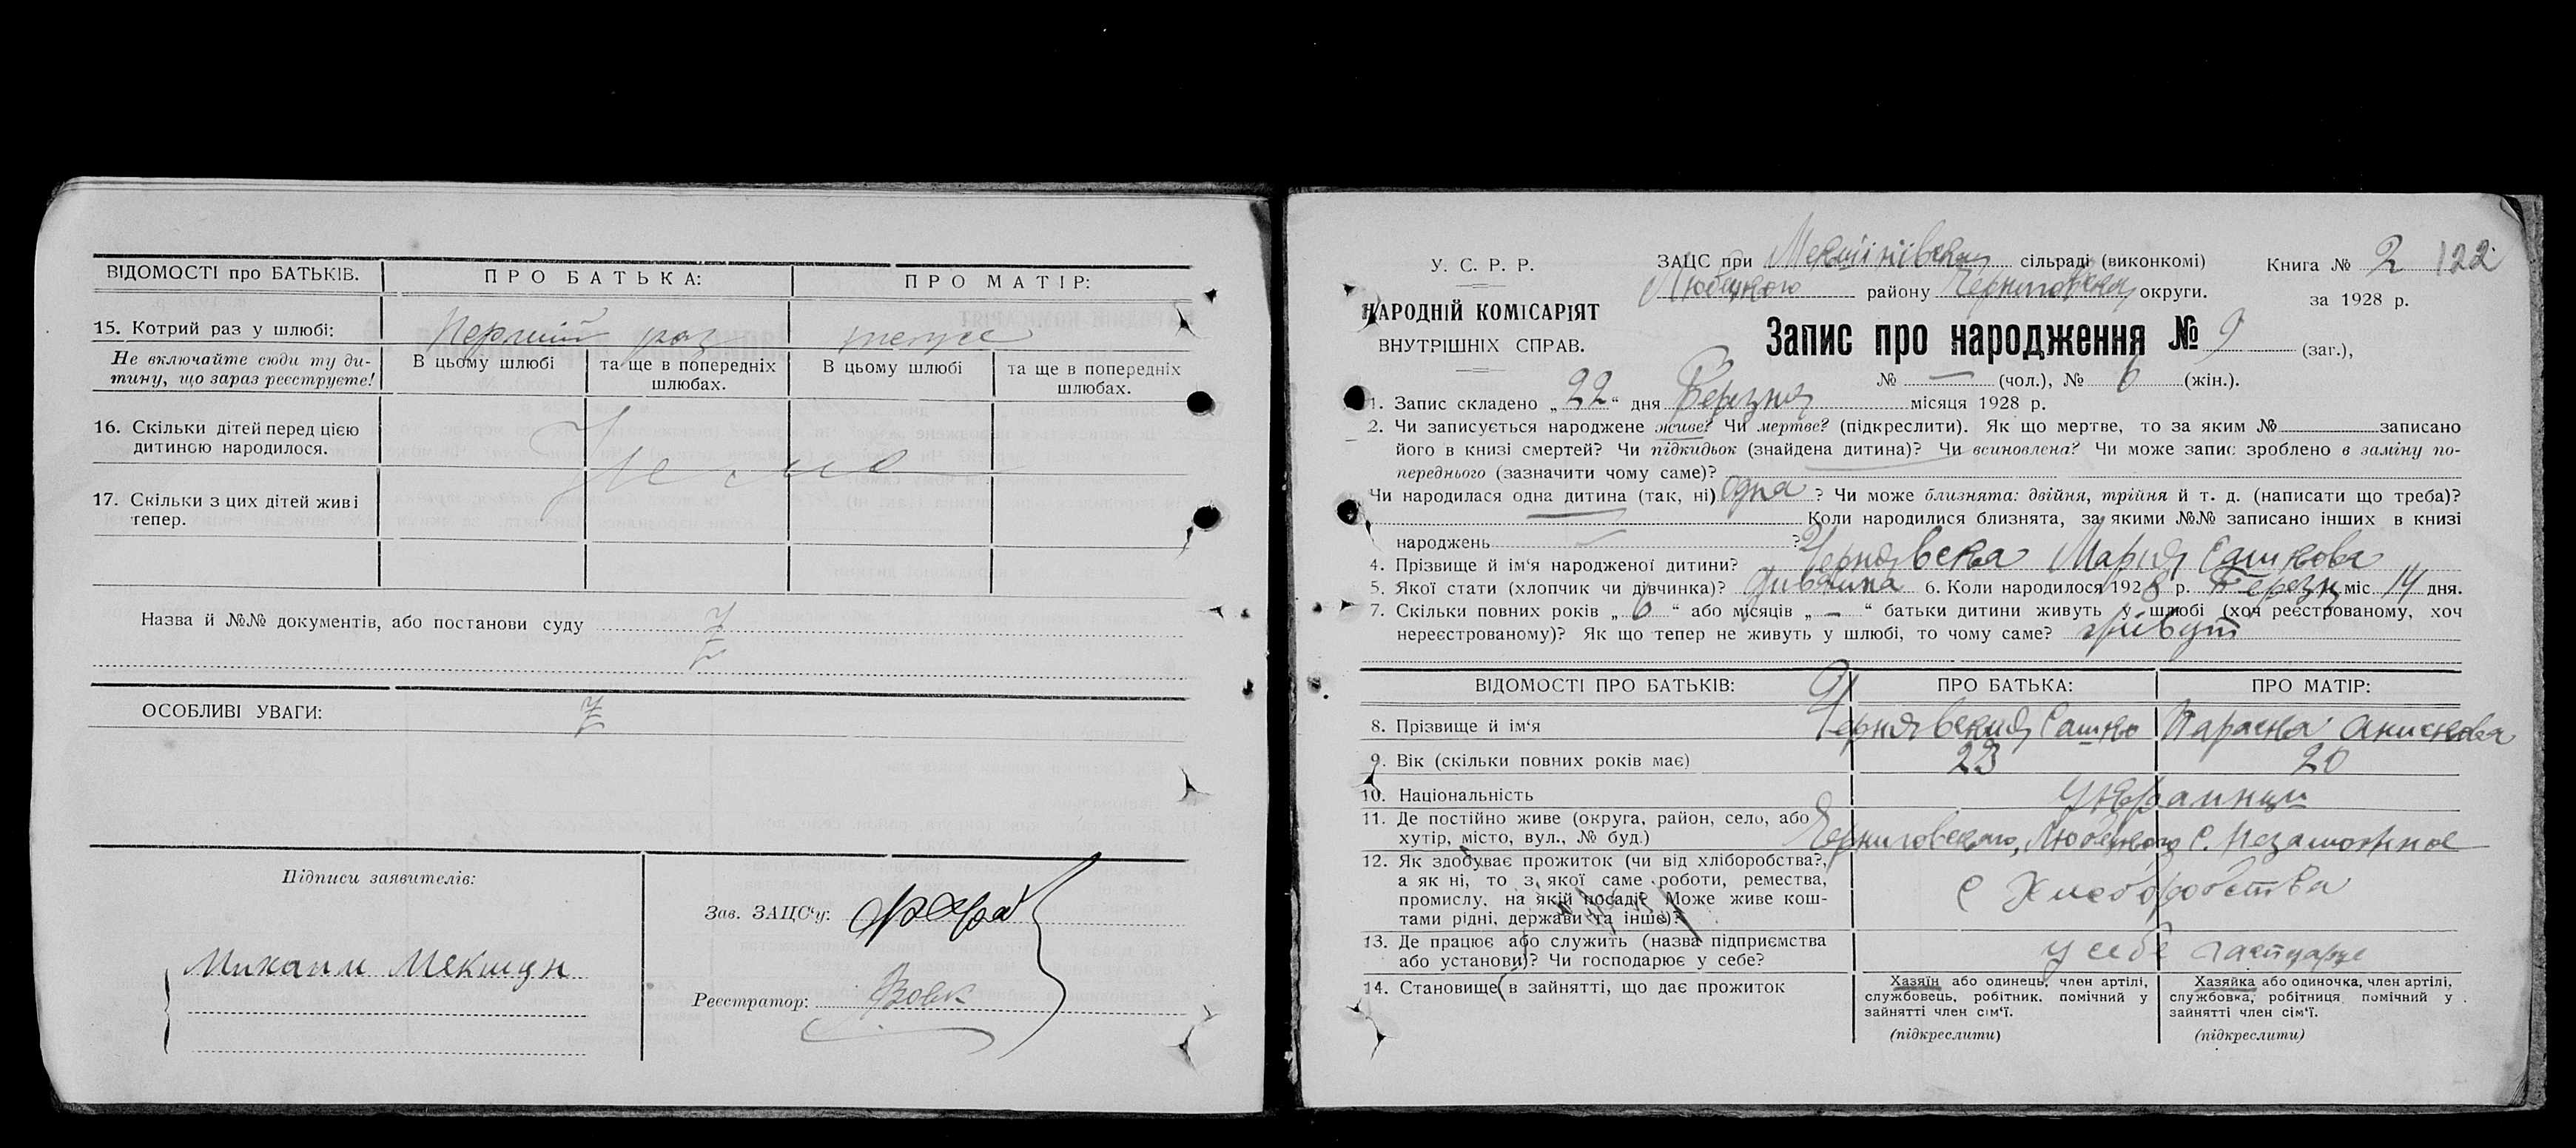 ВІДОМОСТІ про БАТЬКІВ. ПРО БАТЬКА: ПРО МАТІР:
15. Котрий раз у шлюбі: Перший раз тоже
Не включайте сюди ту ди-
тину, що зараз реєструєте!
В цьому шлюбі та ще в попередніх шлюбах. В цьому шлюбі та ще в попередніх шлюбах.
16. Скільки дітей перед цією
дитиною народилося.
17. Скільки з цих дітей живі
тепер.
Назва й №№ документів, або постанови суду
ОСОБЛИВІ УВАГИ:
Підписи заявителів:
Михаил Мекшун
Зав. ЗАЦС'у:
Реєстратор: Вовк
У. С. Р. Р.
НАРОДНІЙ КОМІСАРІЯТ
ВНУТРІШНІХ СПРАВ.
ЗАЦС при сільраді (виконкомі)
Любецкого району округи.
Книга № 2 122
за 1928 р.
Запис про народження № 9 (заг.),
№ — (чол.), № 6 (жін.).
1. Запис складено „22“ дня Березня місяця 1928 р.
2. Чи записується народжене живе? Чи мертве? (підкреслити). Як що мертве, то за яким № записано
його в книзі смертей? Чи підкидьок (знайдена дитина)? Чи всиновлена? Чи може запис зроблено в заміну по-
переднього (зазначити чому саме)?
Чи народилася одна дитина (так, ні) одна ? Чи може близнята: двійня, трійня й т. д. (написати що треба)?
Коли народилися близнята, за якими №№ записано інших в книзі
народжень ?
4. Прізвище й ім'я народженої дитини? Чернявска Мария Сашкова
5. Якої стати (хлопчик чи дівчинка)? дивчина 6. Коли народилося 1928 р. Березн міс 14 дня.
7. Скільки повних років „6“ або місяців „—“ батьки дитини живуть у шлюбі (хоч реєстрованому, хоч
нереєстрованому)? Як що тепер не живуть у шлюбі, то чому саме? живут
ВІДОМОСТІ ПРО БАТЬКІВ: ПРО БАТЬКА: ПРО МАТІР:
8. Прізвище й ім'я Чернявский Сашко Параска Анискова
9. Вік (скільки повних років має) 23 20
10. Національність Украинци
11. Де постійно живе (округа, район, село, або
хутір, місто, вул., № буд.) Черниговского, Любецкого с. Незаможное
12. Як здобуває прожиток (чи від хліборобства?,
а як ні, то з якої саме роботи, ремества,
промислу, на якій посаді? Може живе кош-
тами рідні, держави та інше)?
С Хлеборобства
13. Де працює або служить (назва підприємства
або установи)? Чи господарює у себе?
у себе
14. Становище в зайнятті, що дає прожиток
Хазяїн або одинець, член артілі,
службовець, робітник, помічний у
зайнятті член сім'ї.
(підкреслити)
Хазяйка або одиночка, член артілі,
службовка, робітниця помічний у
зайнятті член сім'ї.
(підкреслити)